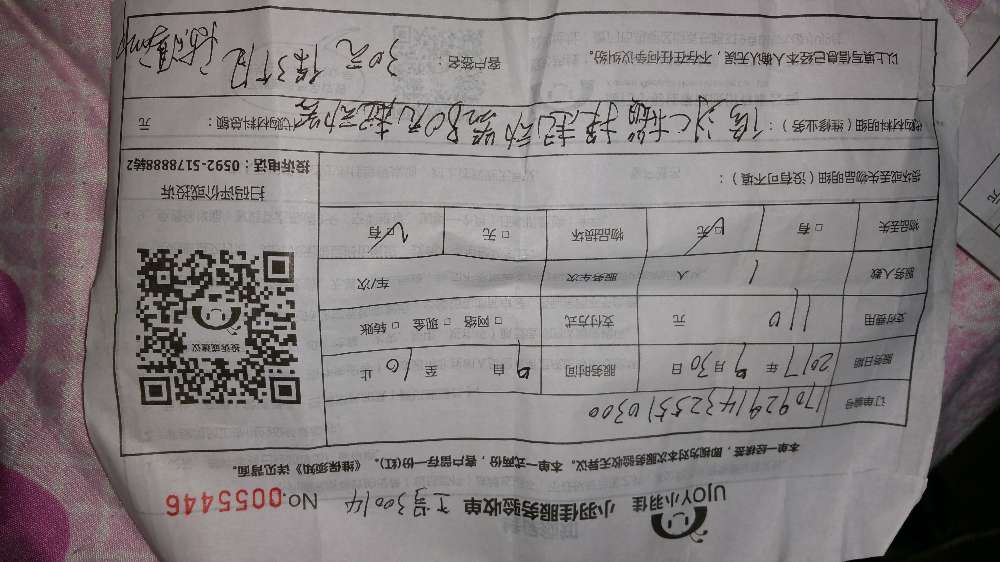 UJOY小羽佳 小羽佳服务验收单 工号30014 No.0055446
本单一经核签,即视为对本次服务验收无异议。本单一式两份,客户留存一份(红)。《维保须知》详见背面。
订单编号 17092914325510300
服务日期 2017年9月30日 服务时间 9自 至10止
支付费用 110元 支付方式 □网络 □现金 □转账
服务人数 1人 服务车次 车/次
物品丢失 □有 □无 物品损坏 □无 □有
损坏丢失物品明细(没有可不填):
代购材料明细(维修业务): 代购材料总额: 元
以上填写信息已经本人确认无误,不存在任何争议纠纷。 客户签名:
30元
投诉或建议
扫码评价或投诉
投诉电话:0592-5178888转2